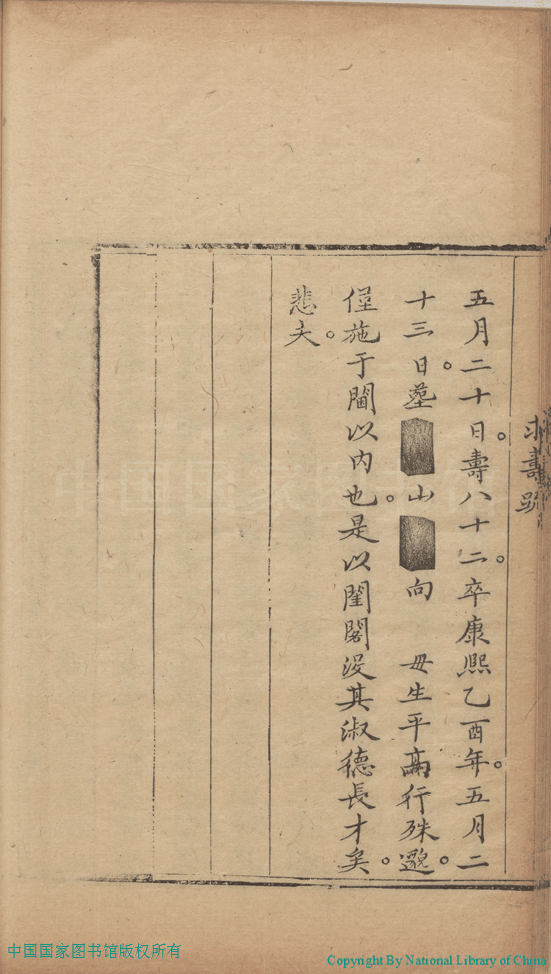 壽
五月二十日。壽八十二。卒康熙乙酉年。五月二
十三日。塟山向 母生平高行殊邈。
僅施于閫以内也。是以閨閣没其淑德長才矣。
悲夫。
中国国家图书馆版权所有
Copyright By National Library of China